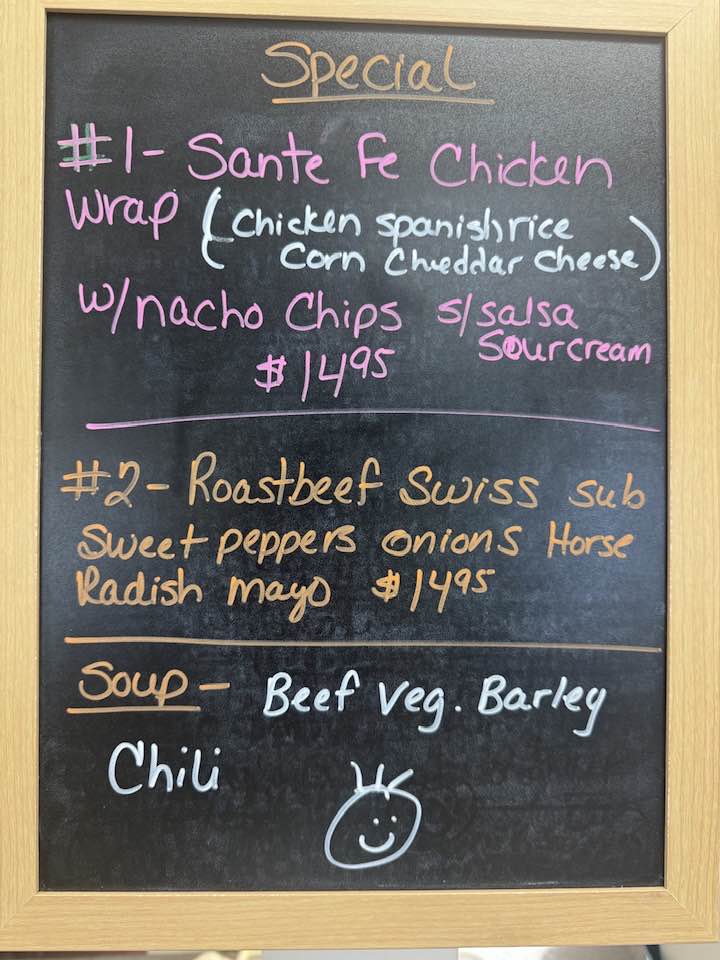 Special
#1- Sante Fe Chicken
Wrap (Chicken spanish rice
Corn Cheddar cheese)
w/nacho Chips s/salsa
Sour cream
$14.95
#2- Roastbeef Swiss sub
Sweet peppers onions Horse
Radish mayo $14.95
Soup - Beef Veg. Barley
Chili